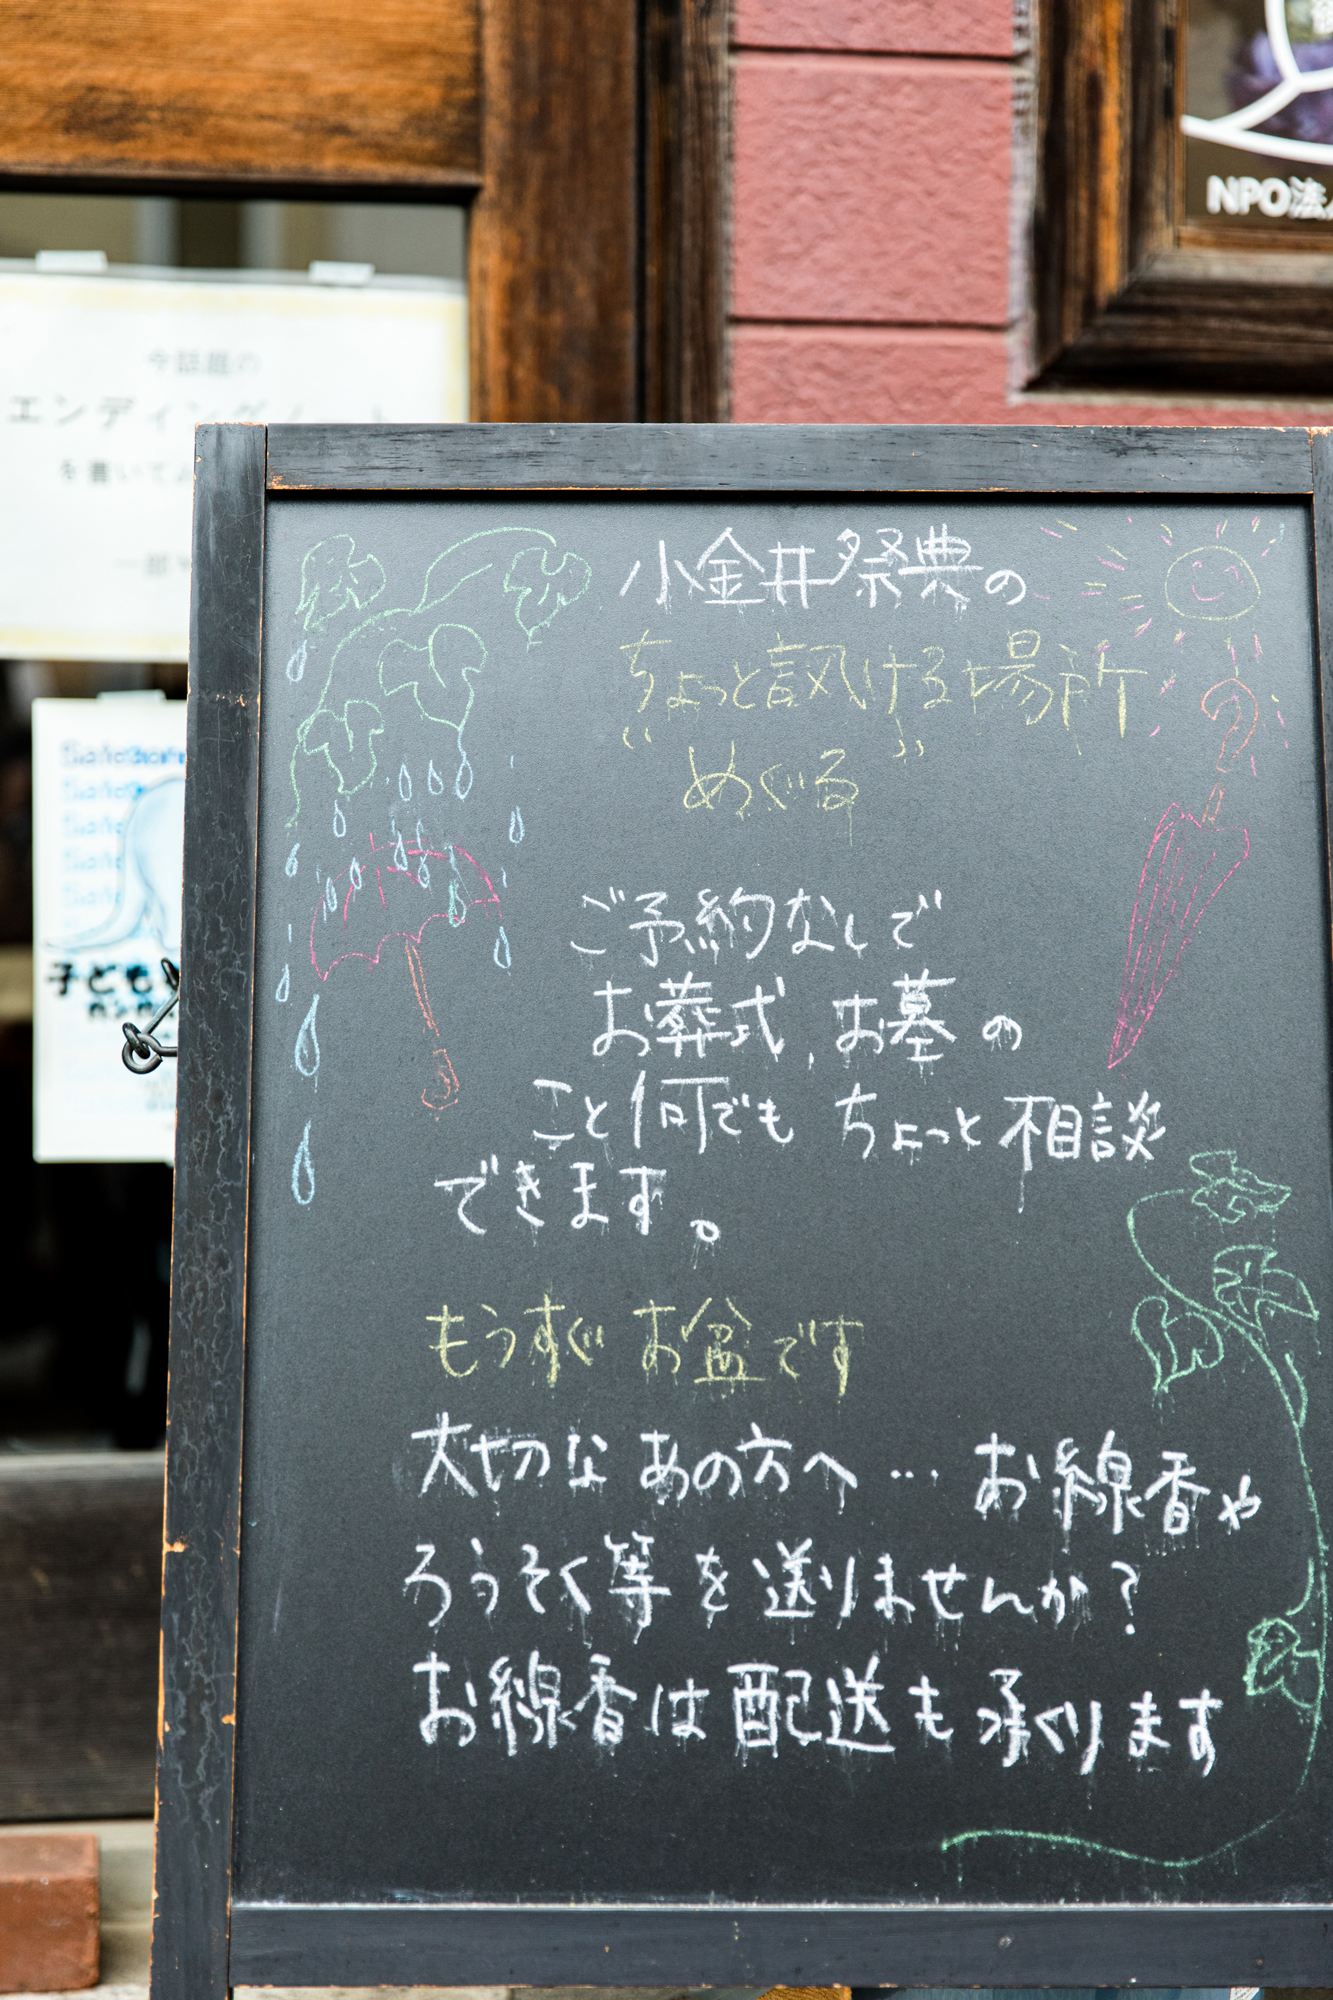 NPO法
今話題の
エンディングノート
を書いて
小金井祭典の
ちょっと訊ける場所
"めぐる"
ご予約なしで
お葬式、お墓の
こと何でもちょっと相談
できます。
もうすぐお盆です
大切なあの方へ…お線香や
ろうそく等を送りませんか?
お線香は配送も承ります
子ども